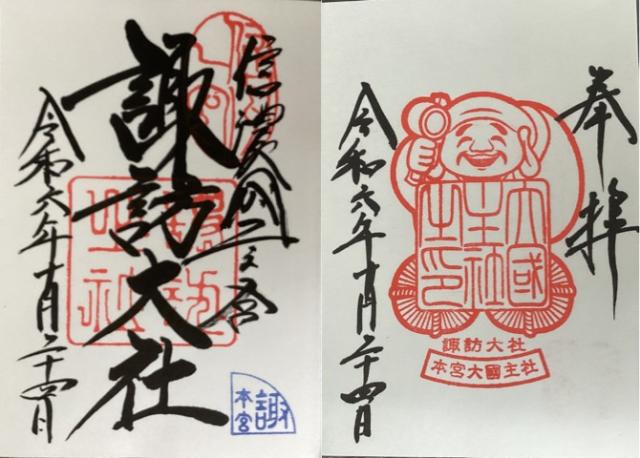 信濃國一之宮
諏訪大社
令和六年十月二十四日
諏訪
本宮
奉拝
大國
主社
之印
令和六年十月二十四日
諏訪大社
本宮大國主社